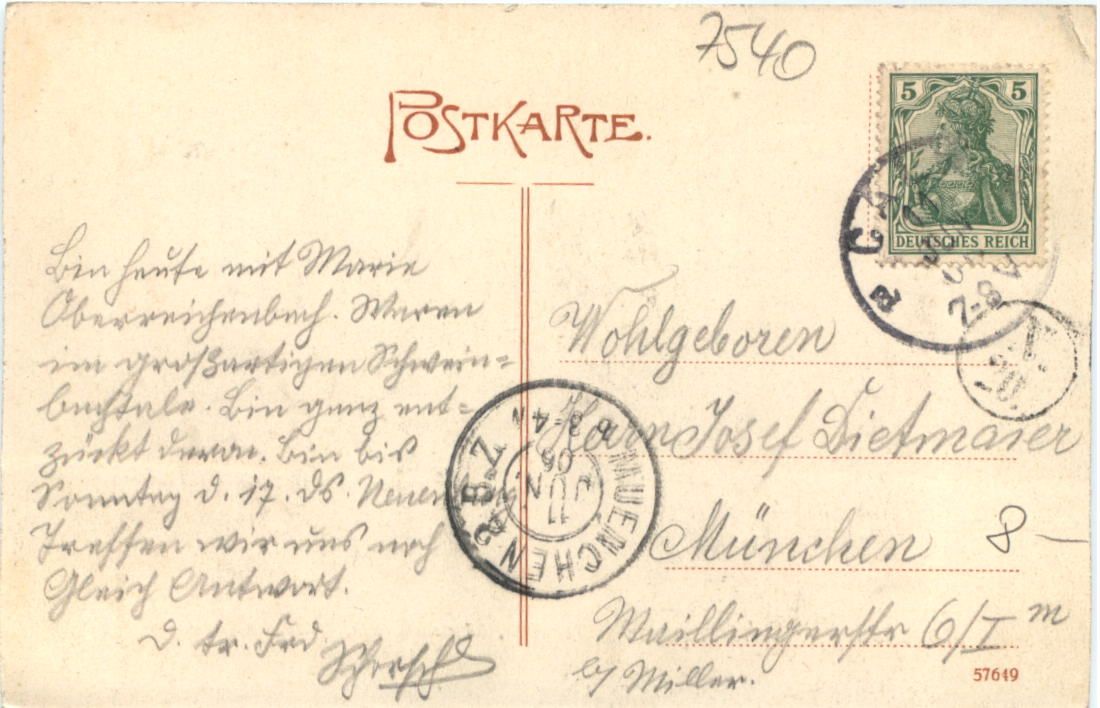 7540
POSTKARTE.
5 5
DEUTSCHES REICH
7-8
Bin heute mit Marie
Oberreichenbach. Waren
im großartigen Schwein=
bachtale. Bin ganz ent=
zückt davon. Bin bis
Sonntag d. 17. ds.
Treffen wir uns noch
Gleich Antwort.
d. tr. Frd
Schorsch
MUENCHEN 2 B.Z.
11
JUN
06
3-4 N
Wohlgeboren
Herrn Josef Dietmaier
München 8
Maillingerstr 6/I m
b/ Miller.
57649